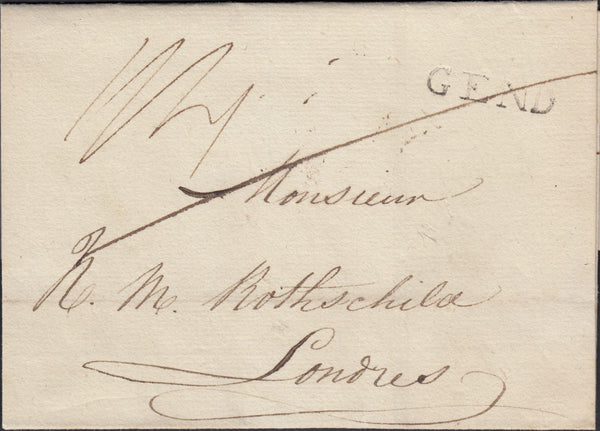 GEND
Monsieur
N. M. Rothschild
Londres